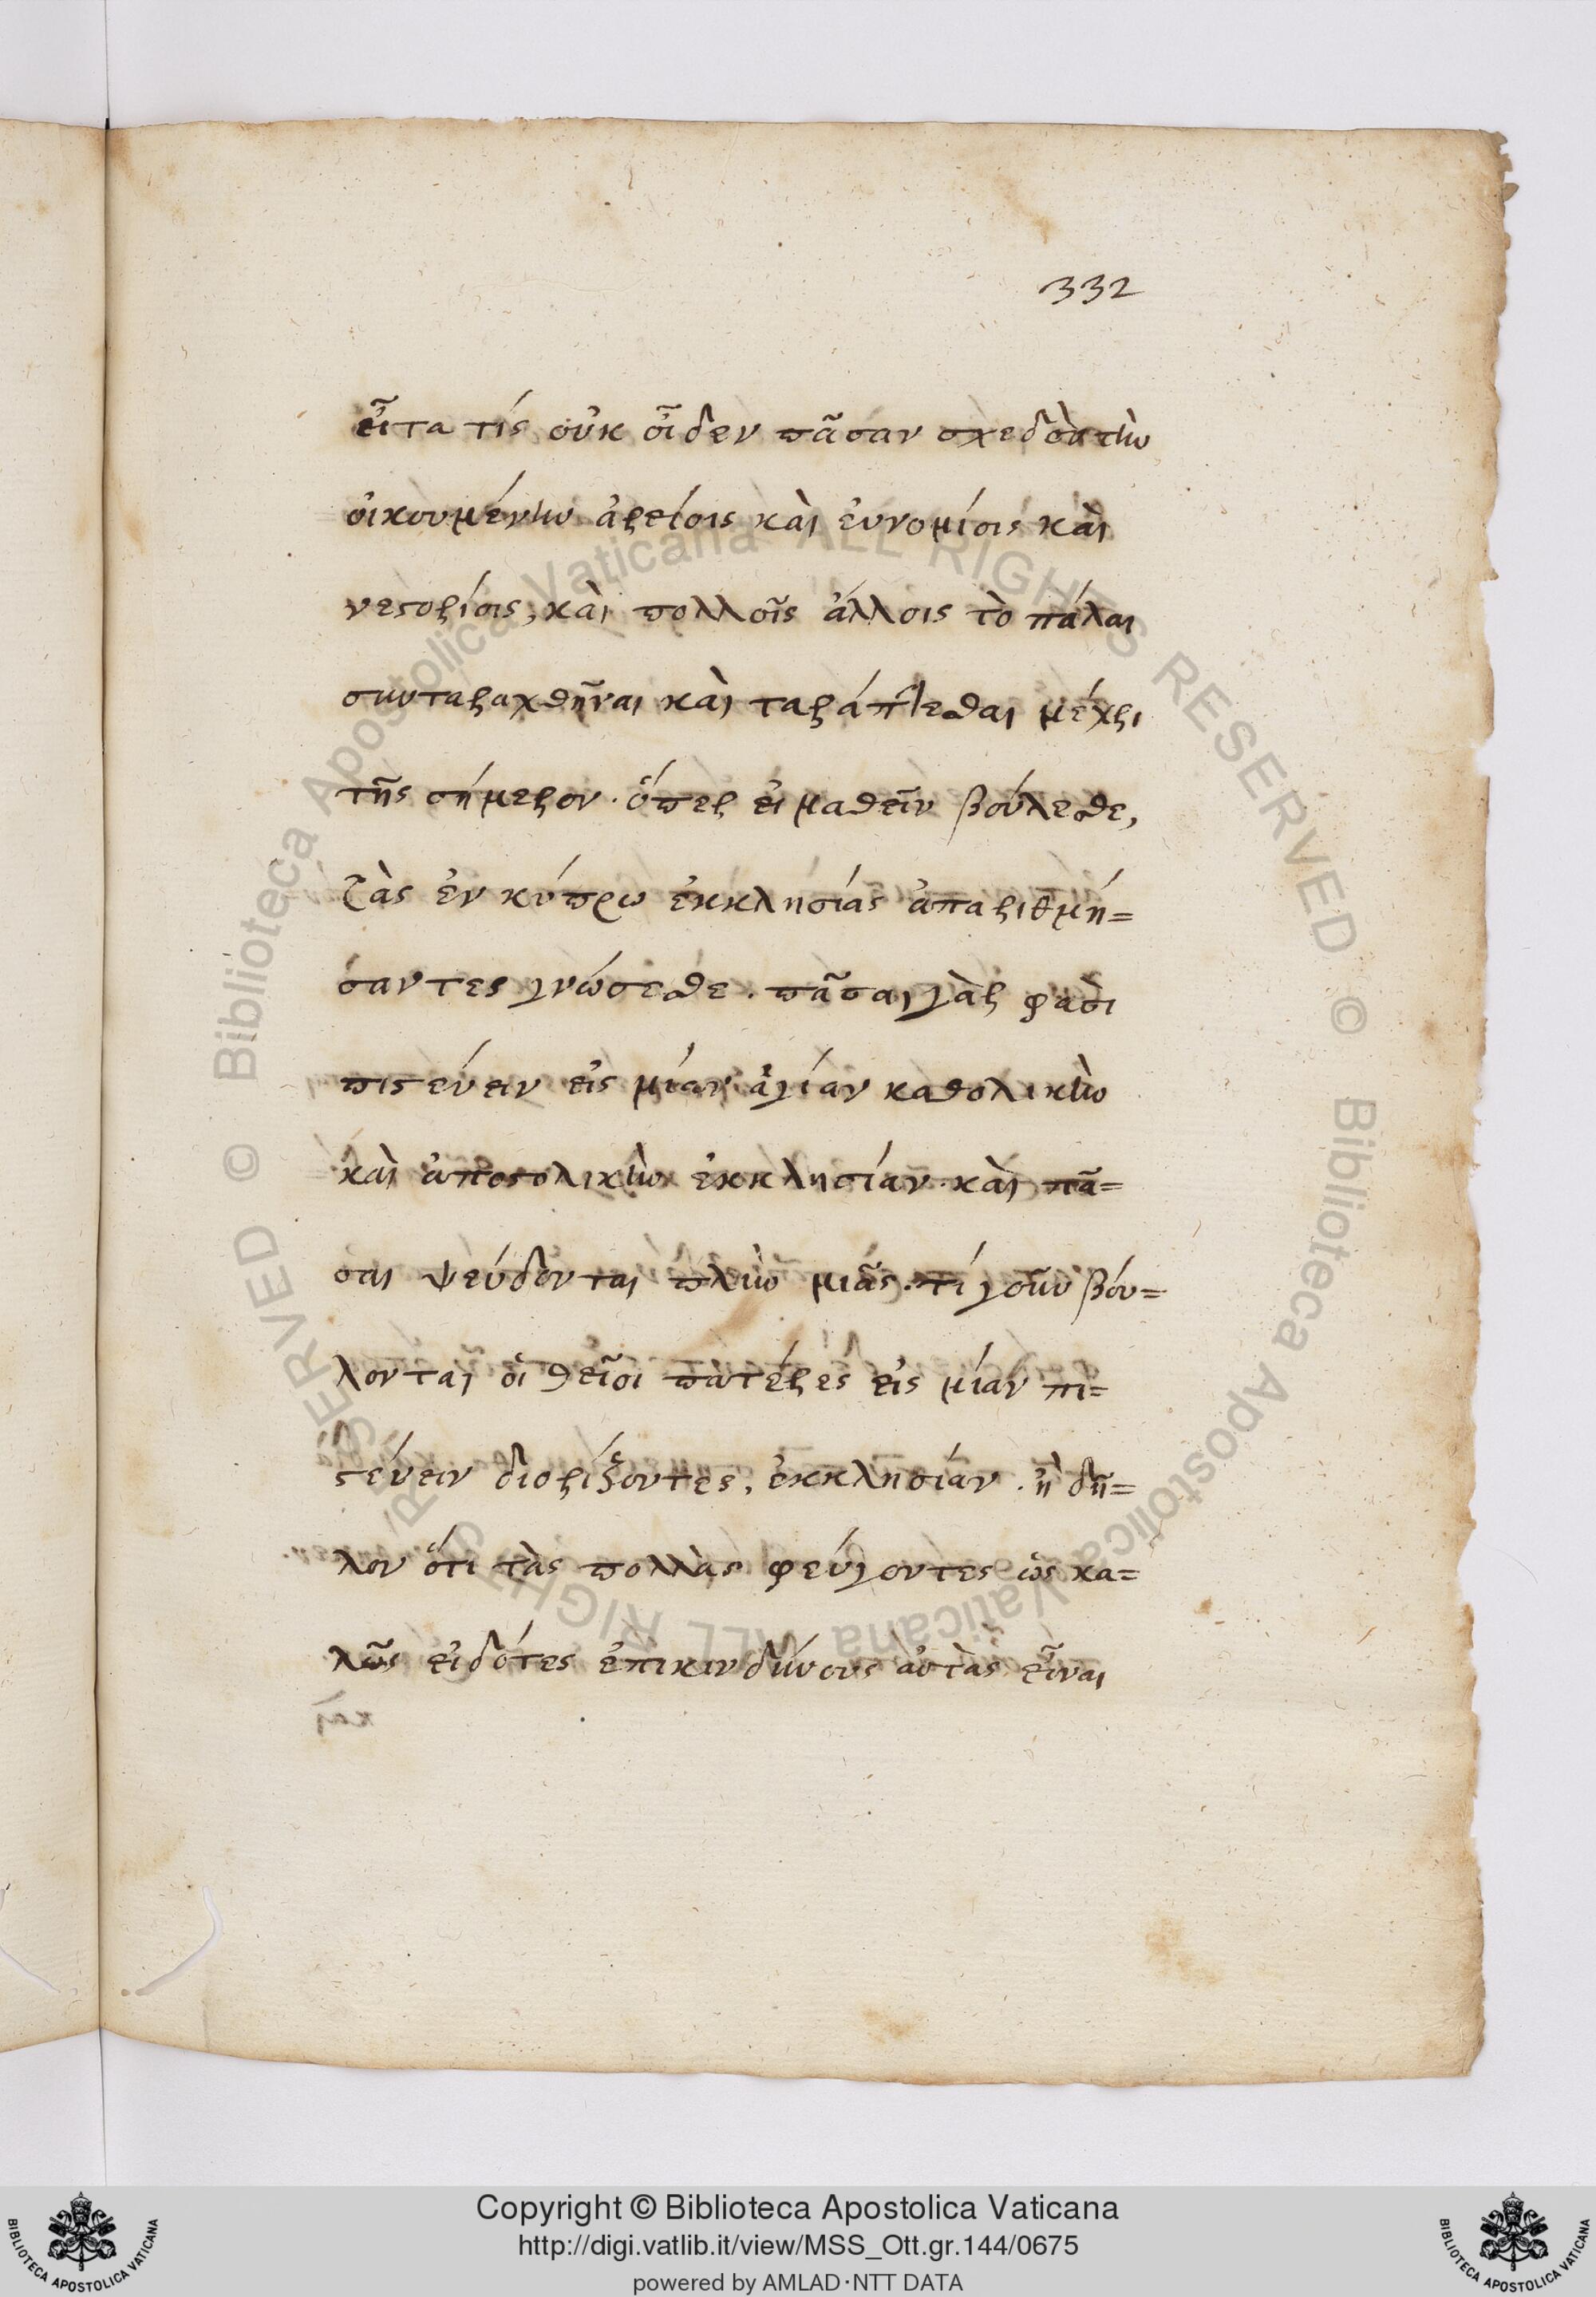 332
εἶτα τίς οὐκ οἶδεν πᾶσαν σχεδὸν τὴν
οἰκουμένην ἀρείοις καὶ εὐνομίοις καὶ
νεστορίοις, καὶ πολλοῖς ἄλλοις τὸ πάλαι
συνταραχθῆναι καὶ ταράττεσθαι μέχρι
τῆς σήμερον. ὅπερ εἰ μαθεῖν βούλεσθε,
τὰς ἐν κύπρω ἐκκλησίας ἀπαριθμή=
σαντες γνώσεσθε. πᾶσαι γὰρ φασὶ
πιστεύειν εἰς μίαν ἁγίαν καθολικὴν
καὶ ἀποστολικὴν ἐκκλησίαν. καὶ πᾶ=
σαι ψεύδονται πλὴν μιᾶς. τί γοῦν βού=
λονται οἱ θεῖοι πατέρες εἰς μίαν πι=
στεύειν διορίζοντες, ἐκκλησίαν. ἢ δῆ=
λον ὅτι τὰς πολλὰς φεύγοντες ὡς κα=
λῶς εἰδότες ἐπικινδύνους αὐτὰς εἶναι
Copyright © Biblioteca Apostolica Vaticana
http://digi.vatlib.it/view/MSS_Ott.gr.144/0675
powered by AMLAD·NTT DATA
BIBLIOTECA APOSTOLICA VATICANA
BIBLIOTECA APOSTOLICA VATICANA
© Biblioteca Apostolica Vaticana ALL RIGHTS RESERVED © Biblioteca Apostolica Vaticana ALL RIGHTS RESERVED